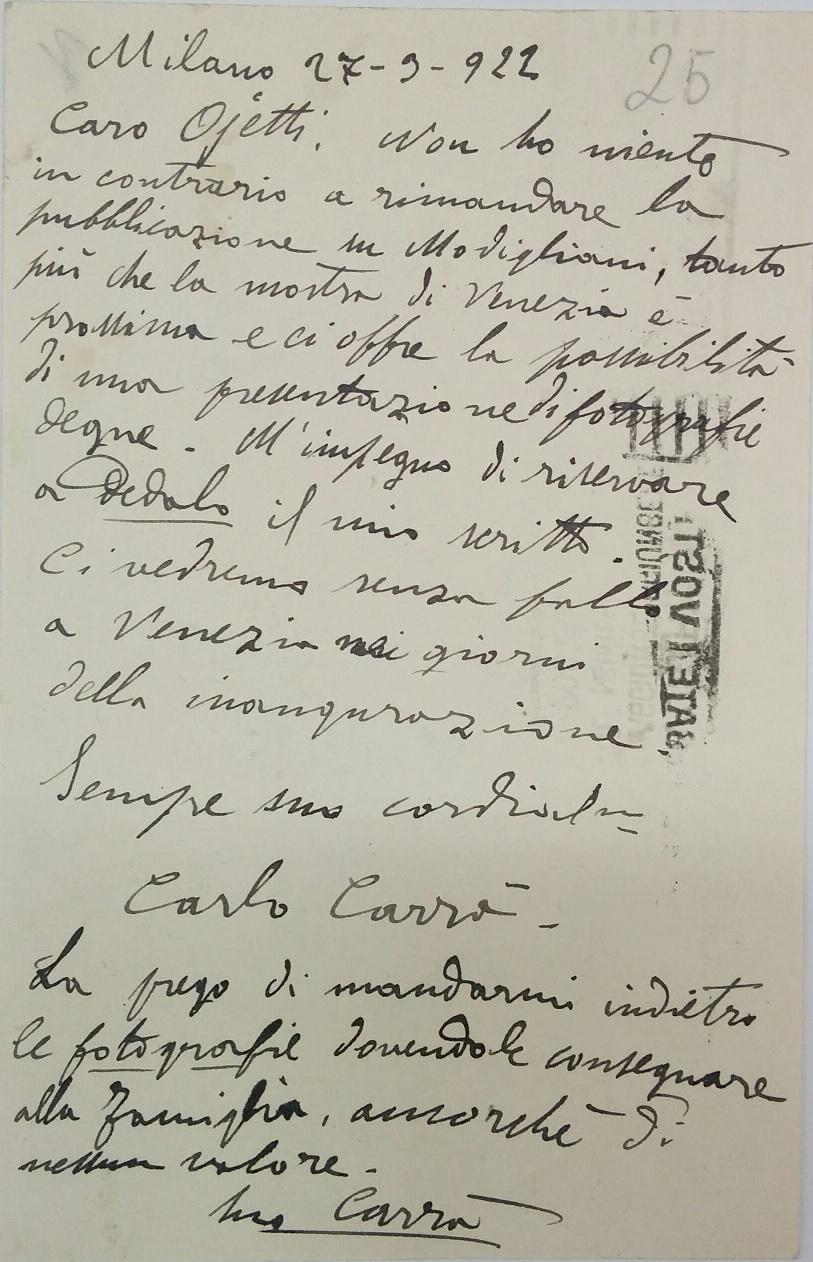 Milano 27-3-922
25
Caro Ojetti, Non ho niente
in contrario a rimandare la
pubblicazione su Modigliani, tanto
più che la mostra di Venezia è
prossima e ci offre la possibilità
di una presentazione di fotografie
degne - M'impegno di riservare
a Dedalo il mio scritto.
Ci vedremo senza fallo
a Venezia nei giorni
della inaugurazione.
Sempre suo cordialm
Carlo Carrà -
La prego di mandarmi indietro
le fotografie dovendole consegnare
alla famiglia, ancorchè di
nessun valore.
Suo Carrà